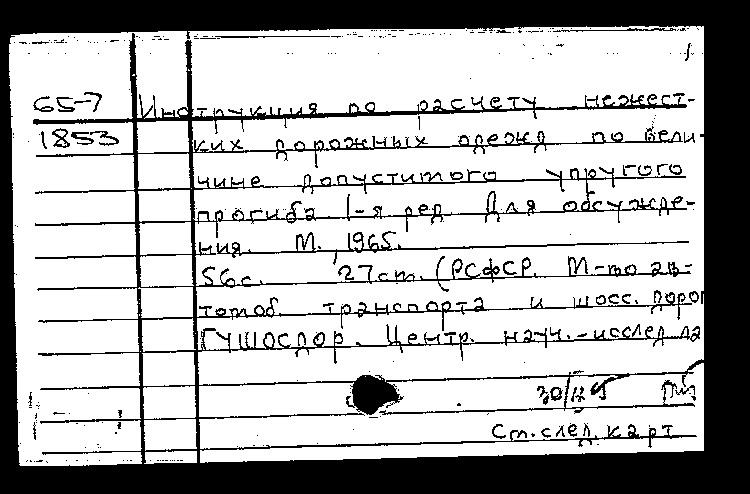 65-7 Инструкция по расчету нежест-
1853 ких дорожных одежд по вели-
чине допустимого упругого
прогиба 1-я ред. Для обсужде-
ния. М., 1965.
56с. 27см. (РСФСР. М-во ав-
томоб. транспорта и шосс. дорог
ГУШОСДОР. Центр. науч.-исслед. ла
См. след. карт